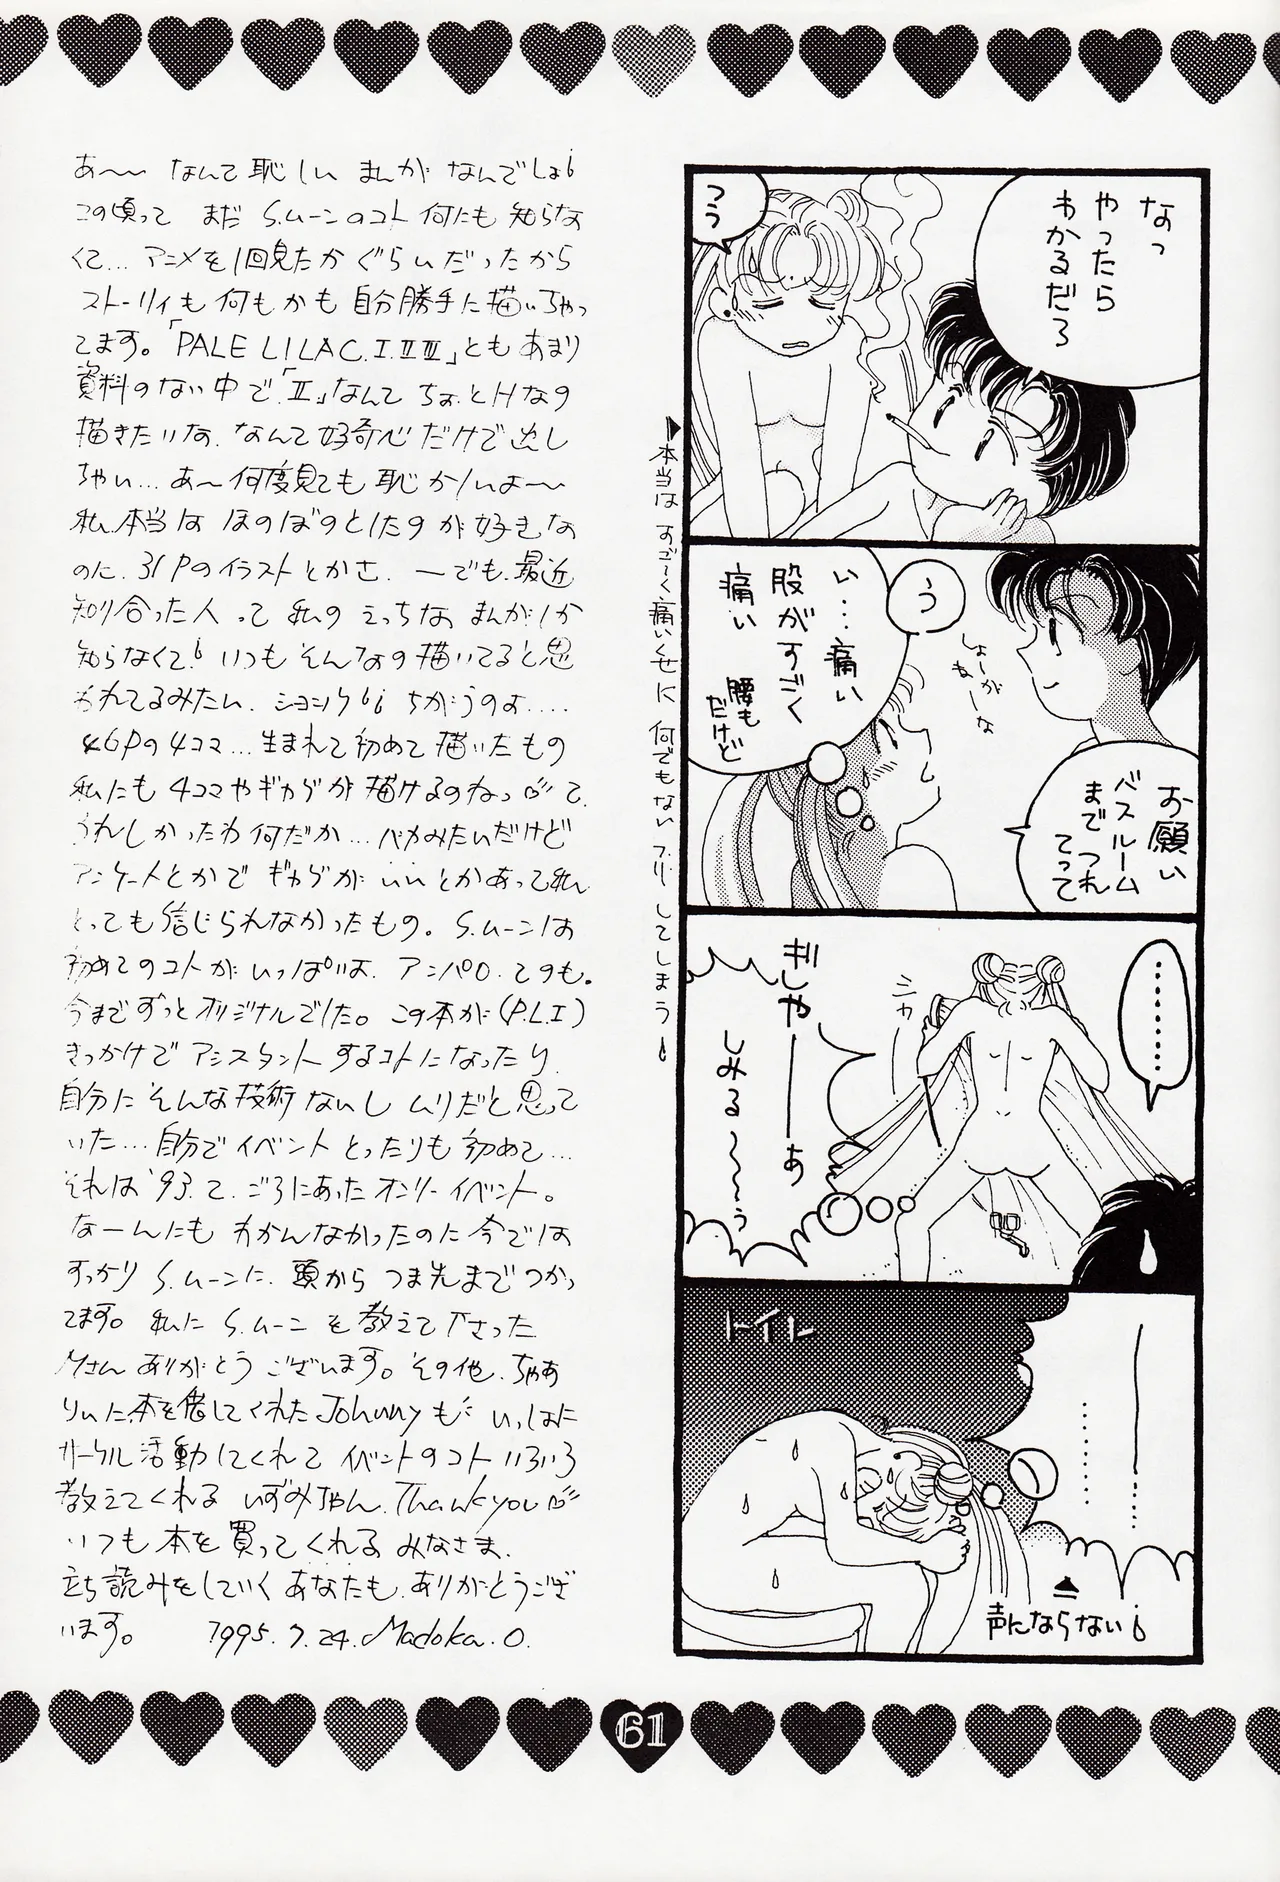 なっ
やったら
わかるだろ
うう
う
い…痛い
股がすごく
痛い
腰も
だけど
しょーが
ねーな
お願い
バスルーム
までつれ
てって
▶本当はすご〜く痛いくせに何でもないフリしてしまう
………
シャカ
ぎしゃ――あ
しみる〜〜〜う
トイレ
……
声にならない
あ〜〜なんて恥しいまんがなんでしょ
この頃ってまだS.ムーンのコト何にも知らな
くて…アニメを1回見たかぐらいだったから
ストーリィも何もかも自分勝手に描いちゃっ
てます。「PALE LILAC.I.II.III」ともあまり
資料のない中で「II」なんてちょっとHなの
描きたいな、なんて好奇心だけで出し
ちゃい…あ〜何度見ても恥かしいよ〜〜
私、本当はほのぼのとしたのが好きな
のに、31Pのイラストとかさ、—でも、最近
知り合った人って私のえっちなまんがしか
知らなくていつもそんなの描いてると思
われてるみたい、ショック ちがうのよ....
46Pの4コマ…生まれて初めて描いたもの
私にも4コマやギャグが描けるのねっ て、
うれしかったわ何だか…バカみたいだけど
アンケートとかでギャグがいいとかあって私
とっても信じられなかったもの。S.ムーンは
初めてのコトがいっぱいよ、アンパロ、ての も。
今までずっとオリジナルでした。この本が(P.L.I)
きっかけでアシスタントするコトになったり、
自分にそんな技術ないしムリだと思って
いた…自分でイベントとったりも初めて…
それは'93.て、ごろにあったオンリーイベント。
なーんにもわかんなかったのに今では
すっかりS.ムーンに、頭からつま先までつかっ
てます。私にS.ムーンを教えて下さった
Mさんありがとうございます。その他、ちゃあ
りぃに、本を貸してくれたJohnnyも いっしょに
サークル活動してくれてイベントのコトいろいろ
教えてくれるいずみちゃん、Thank you
いつも本を買ってくれるみなさま、
立ち読みをしていくあなたも、ありがとうござ
います。 1995.7.24. Madoka.O.
61